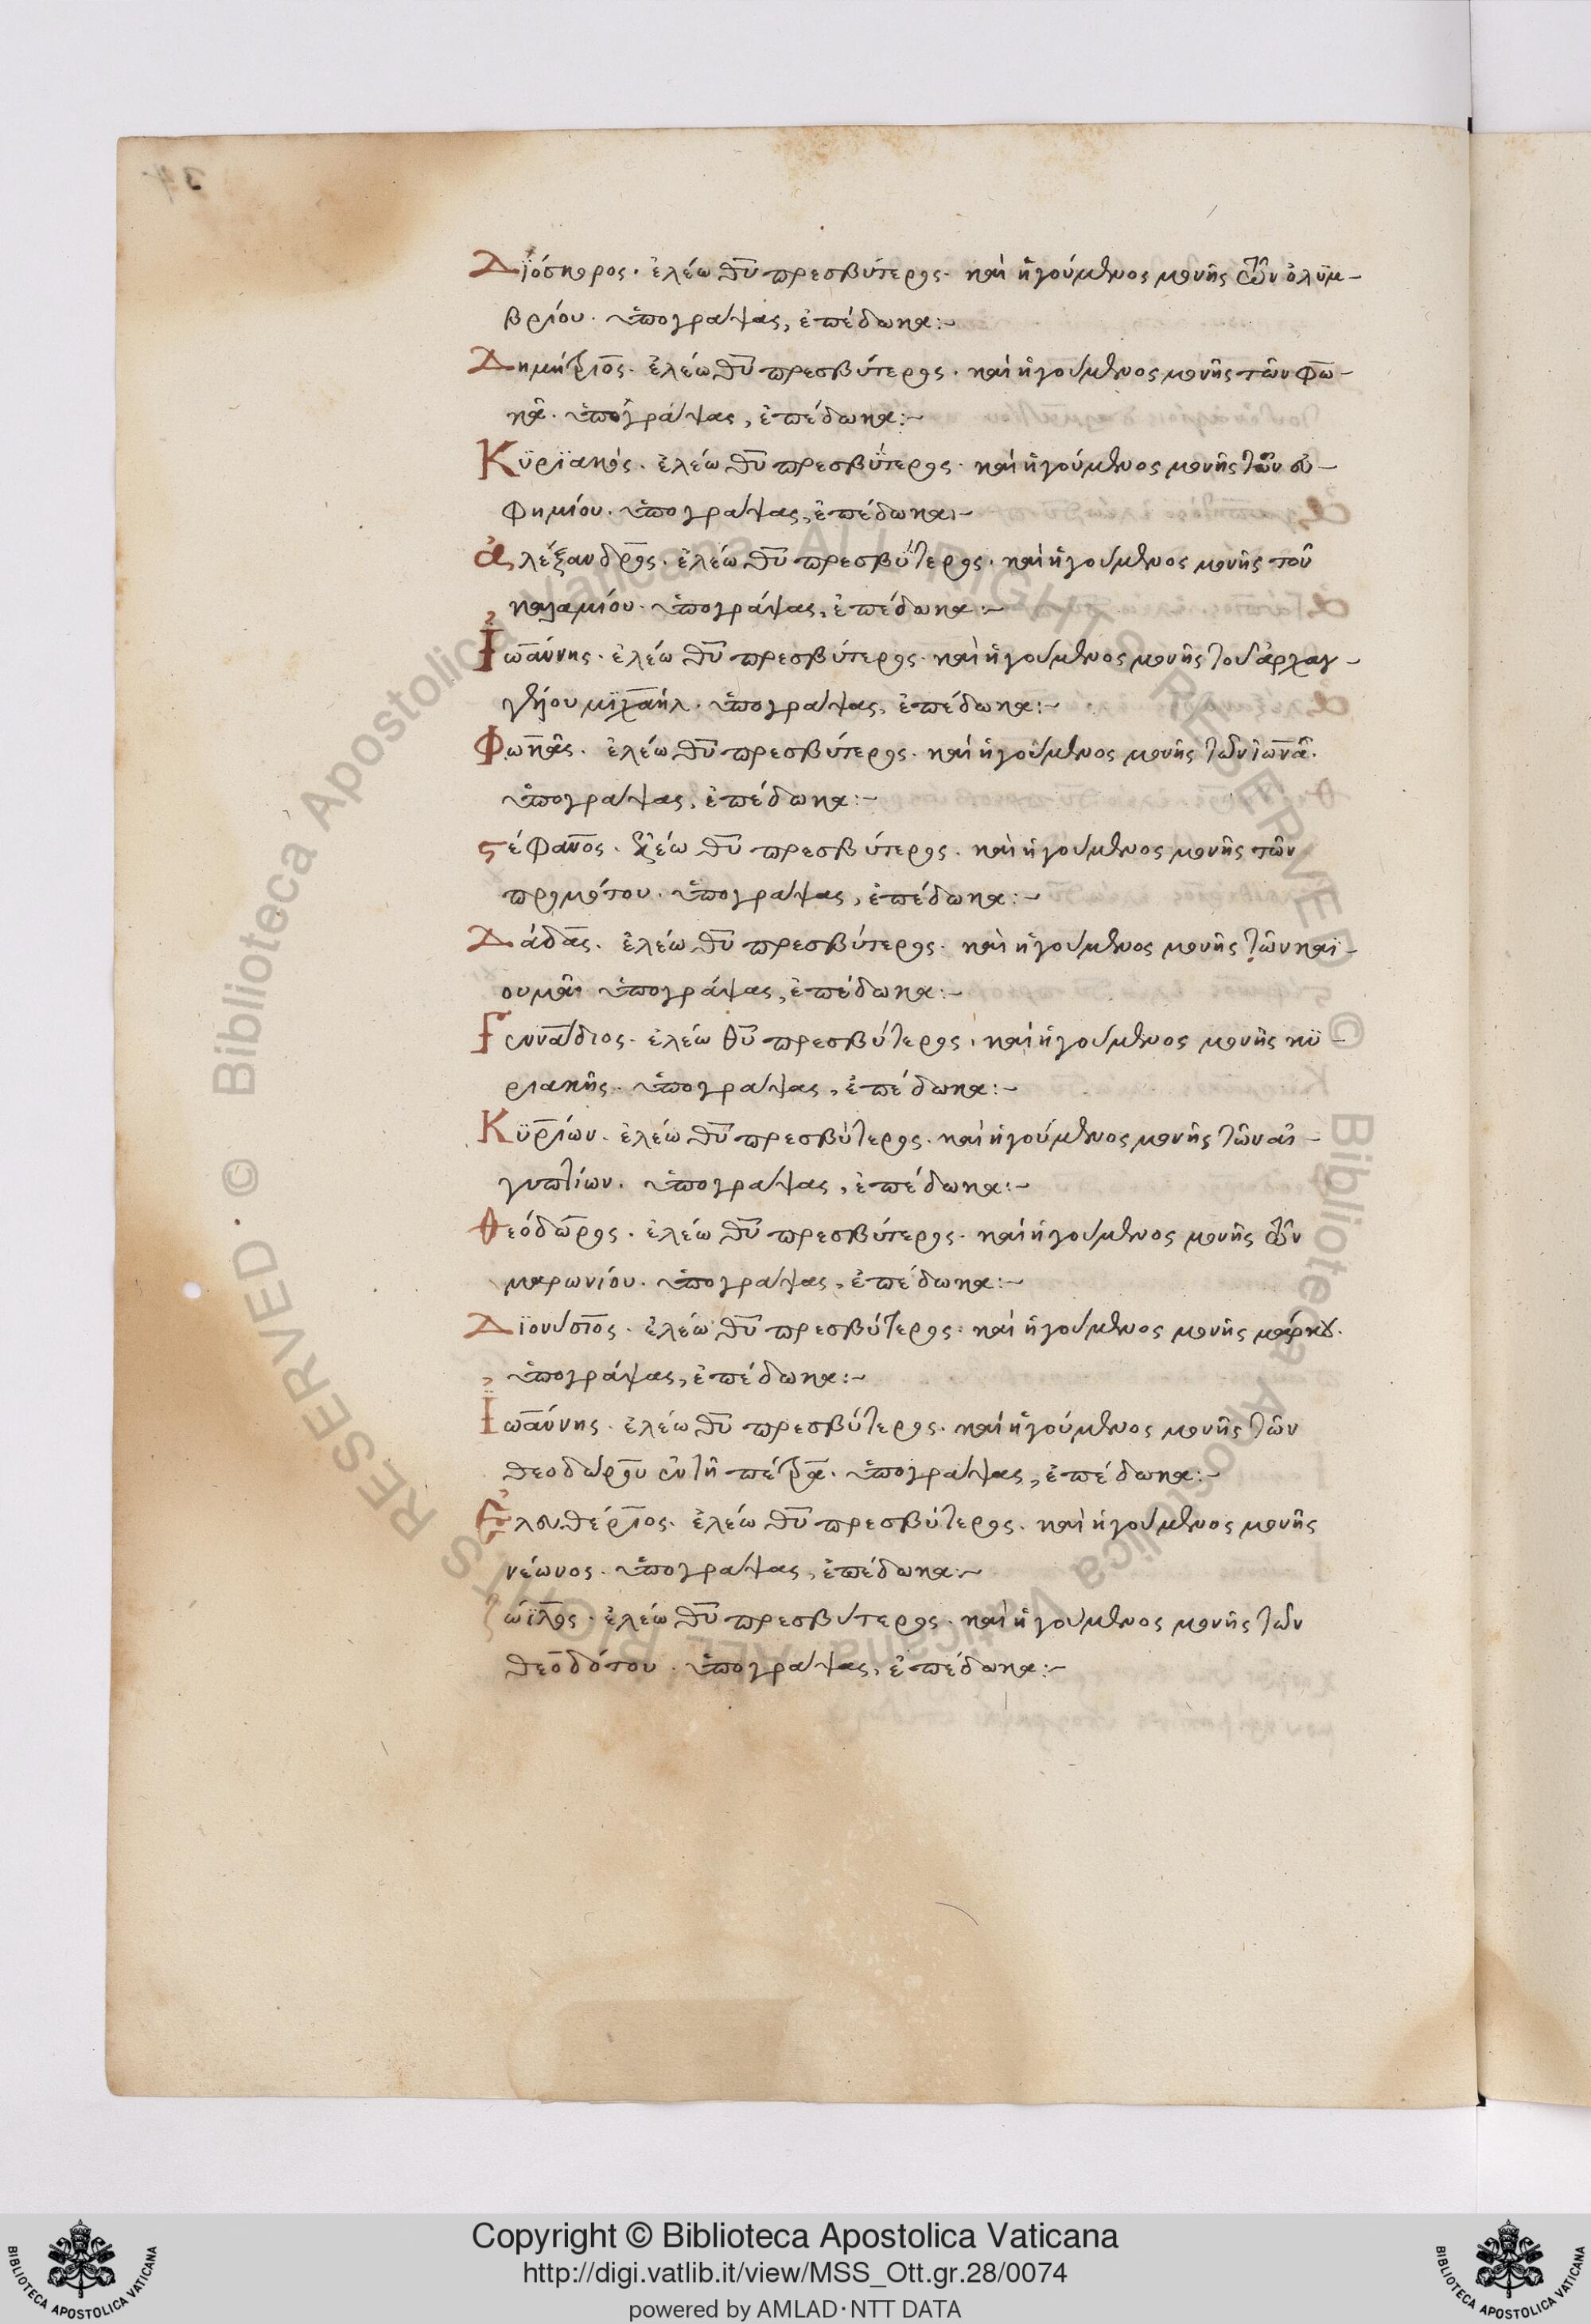 Διόσκορος. ἐλέω θῦ πρεσβύτερος. καὶ ἡγούμενος μονῆς τῶν ὀλυμ-
βρίου. ὑπογράψας, ἐπέδωκα:-
Δημήτριος. ἐλέω θῦ πρεσβύτερος. καὶ ἡγούμενος μονῆς τῶν φω-
κᾶ. ὑπογράψας, ἐπέδωκα:-
Κϋρϊακός. ἐλέω θῦ πρεσβύτερος. καὶ ἡγούμενος μονῆς τῶν εὐ-
φημίου. ὑπογράψας, ἐπέδωκα:-
ἀλέξανδρος. ἐλέω θῦ πρεσβύτερος. καὶ ἡγούμενος μονῆς τοῦ
καλαμίου. ὑπογράψας, ἐπέδωκα:-
Ἰωάννης. ἐλέω θῦ πρεσβύτερος. καὶ ἡγούμενος μονῆς τοῦ ἀρχαγ-
γέλου μϊχαήλ. ὑπογράψας, ἐπέδωκα:-
Φωκᾶς. ἐλέω θῦ πρεσβύτερος. καὶ ἡγούμενος μονῆς τῶν ἰωνᾶ.
ὑπογράψας, ἐπέδωκα:-
ϛέφανος. ἐλέω θῦ πρεσβύτερος. καὶ ἡγούμενος μονῆς τῶν
προμότου. ὑπογράψας, ἐπέδωκα:-
Δάδας. ἐλέω θῦ πρεσβύτερος. καὶ ἡγούμενος μονῆς τῶν καϊ-
ουμᾶ. ὑπογράψας, ἐπέδωκα:-
Γεννάδιος. ἐλέω θῦ πρεσβύτερος. καὶ ἡγούμενος μονῆς κϋ-
ριακῆς. ὑπογράψας, ἐπέδωκα:-
Κϋρίων. ἐλέω θῦ πρεσβύτερος. καὶ ἡγούμενος μονῆς τῶν αἰ-
γυπτίων. ὑπογράψας, ἐπέδωκα:-
Θεόδωρος. ἐλέω θῦ πρεσβύτερος. καὶ ἡγούμενος μονῆς τῶν
μαρωνίου. ὑπογράψας, ἐπέδωκα:-
Δϊονύσιος. ἐλέω θῦ πρεσβύτερος. καὶ ἡγούμενος μονῆς μάρκου.
ὑπογράψας, ἐπέδωκα:-
Ἰωάννης. ἐλέω θῦ πρεσβύτερος. καὶ ἡγούμενος μονῆς τῶν
θεοδώρου ἐν τῆ πέτρα. ὑπογράψας, ἐπέδωκα:-
Ἐλευθέριος. ἐλέω θῦ πρεσβύτερος. καὶ ἡγούμενος μονῆς
νέωνος. ὑπογράψας, ἐπέδωκα:-
ζώϊλος. ἐλέω θῦ πρεσβύτερος. καὶ ἡγούμενος μονῆς τῶν
θεοδότου. ὑπογράψας, ἐπέδωκα:-
Copyright © Biblioteca Apostolica Vaticana
http://digi.vatlib.it/view/MSS_Ott.gr.28/0074
powered by AMLAD·NTT DATA